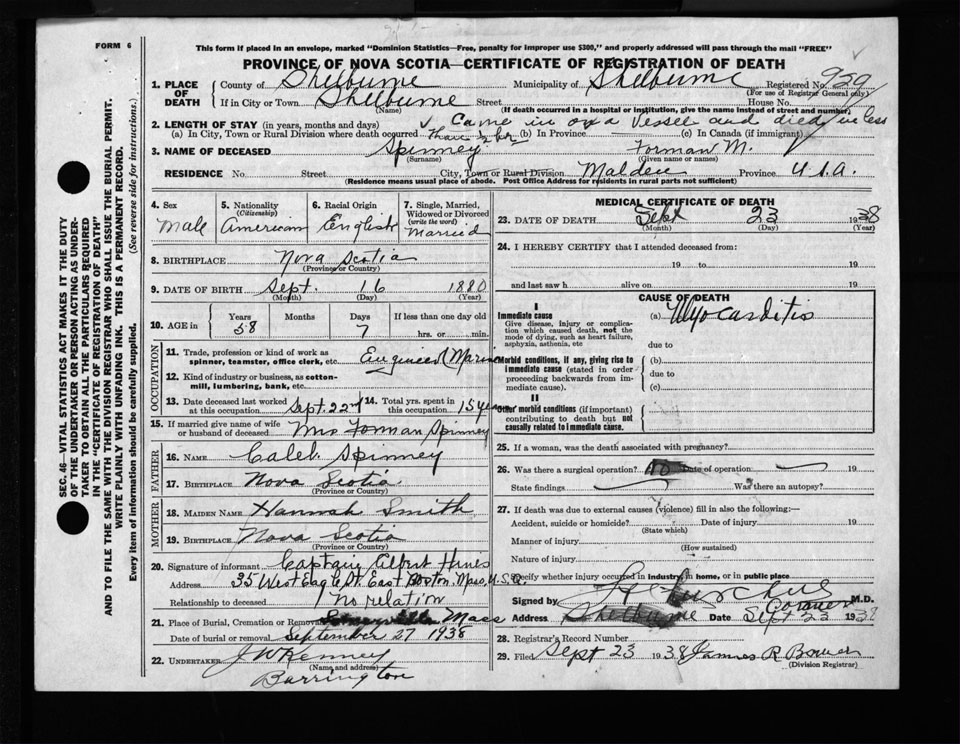 FORM 6
This form if placed in an envelope, marked "Dominion Statistics—Free, penalty for improper use $300," and properly addressed will pass through the mail "FREE"
PROVINCE OF NOVA SCOTIA—CERTIFICATE OF REGISTRATION OF DEATH
1. PLACE OF DEATH County of Shelburne Municipality of Shelburne Registered No. 959
(For use of Registrar General only)
If in City or Town Shelburne Street House No.
(Name) (If death occurred in a hospital or institution, give the name instead of street and number)
2. LENGTH OF STAY (in years, months and days) Came in on a Vessel and died in less
(a) In City, Town or Rural Division where death occurred than ½ hr (b) In Province (c) In Canada (if immigrant)
3. NAME OF DECEASED Spinney Forman M.
(Surname) (Given name or names)
RESIDENCE No. Street City, Town or Rural Division Malden Province U.S.A.
(Residence means usual place of abode. Post Office Address for residents in rural parts not sufficient)
4. Sex Male
5. Nationality (Citizenship) American
6. Racial Origin English
7. Single, Married, Widowed or Divorced (write the word) Married
8. BIRTHPLACE Nova Scotia
(Province or Country)
9. DATE OF BIRTH Sept. 16 1880
(Month) (Day) (Year)
10. AGE in Years 58 Months Days 7 If less than one day old hrs. or min.
OCCUPATION
11. Trade, profession or kind of work as spinner, teamster, office clerk, etc. Engineer (Marine
12. Kind of industry or business, as cotton-mill, lumbering, bank, etc.
13. Date deceased last worked at this occupation Sept. 22nd
14. Total yrs. spent in this occupation 15 years
15. If married give name of wife or husband of deceased Mrs Forman Spinney
FATHER
16. NAME Caleb Spinney
17. BIRTHPLACE Nova Scotia
(Province or Country)
MOTHER
18. MAIDEN NAME Hannah Smith
19. BIRTHPLACE Nova Scotia
(Province or Country)
20. Signature of informant Captain Albert Hines
Address 35 West Eagle St. East Boston, Mass, U.S.A.
Relationship to deceased No relation
21. Place of Burial, Cremation or Removal Mass
Date of burial or removal September 27 1938
22. UNDERTAKER J W Kenney
(Name and address)
Barrington
MEDICAL CERTIFICATE OF DEATH
23. DATE OF DEATH Sept 23 1938
(Month) (Day) (Year)
24. I HEREBY CERTIFY that I attended deceased from:
19 to 19
and last saw h alive on 19
CAUSE OF DEATH
I
Immediate cause
Give disease, injury or complication which caused death, not the mode of dying, such as heart failure, asphyxia, asthenia, etc
(a) Myocarditis
due to
Morbid conditions, if any, giving rise to immediate cause (stated in order proceeding backwards from immediate cause).
(b)
due to
(c)
II
Other morbid conditions (if important) contributing to death but not causally related to immediate cause.
25. If a woman, was the death associated with pregnancy?
26. Was there a surgical operation? no Date of operation 19
State findings Was there an autopsy?
27. If death was due to external causes (violence) fill in also the following:—
Accident, suicide or homicide? Date of injury 19
(State which)
Manner of injury
(How sustained)
Nature of injury
Specify whether injury occurred in industry, in home, or in public place
Signed by Coroner M.D.
Address Shelburne Date Sept 23 1938
28. Registrar's Record Number
29. Filed Sept 23 1938 James R Bower
(Division Registrar)
SEC. 46—VITAL STATISTICS ACT MAKES IT THE DUTY
OF THE UNDERTAKER OR PERSON ACTING AS UNDER-
TAKER TO OBTAIN ALL THE PARTICULARS REQUIRED
IN THE "CERTIFICATE OF REGISTRATION OF DEATH"
AND TO FILE THE SAME WITH THE DIVISION REGISTRAR WHO SHALL ISSUE THE BURIAL PERMIT.
WRITE PLAINLY WITH UNFADING INK. THIS IS A PERMANENT RECORD.
Every item of information should be carefully supplied. (See reverse side for instructions.)